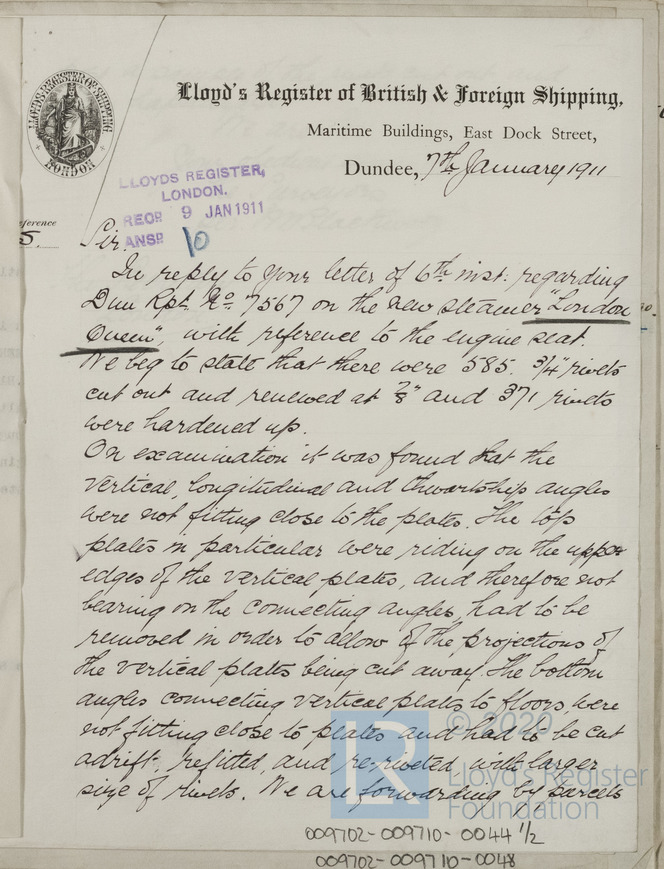 Lloyd's Register of British & Foreign Shipping.
Maritime Buildings, East Dock Street,
Dundee, 7th January 1911
LLOYD'S REGISTER OF SHIPPING
LONDON
LLOYDS REGISTER,
LONDON.
RECD. 9 JAN 1911
ANSD. 10
eference
5.
Sir.
In reply to your letter of 6th inst: regarding
Dun Rpt. No. 7567 on the new steamer "London
Queen", with reference to the engine seat.
We beg to state that there were 585. 3/4" rivets
cut out and renewed at 7/8" and 371 rivets
were hardened up.
On examination it was found that the
vertical, longitudinal and thwartship angles
were not fitting close to the plates. The top
plates in particular were riding on the upper
edges of the vertical plates, and therefore not
bearing on the connecting angles, had to be
removed in order to allow of the projections of
the vertical plates being cut away. The bottom
angles connecting vertical plates to floors, were
not fitting close to plates and had to be cut
adrift, refitted, and re-riveted with larger
size of rivets. We are forwarding by parcels
© 2020
LR
Lloyd's Register
Foundation
009702-009710-0044 1/2
009702-009710-0048